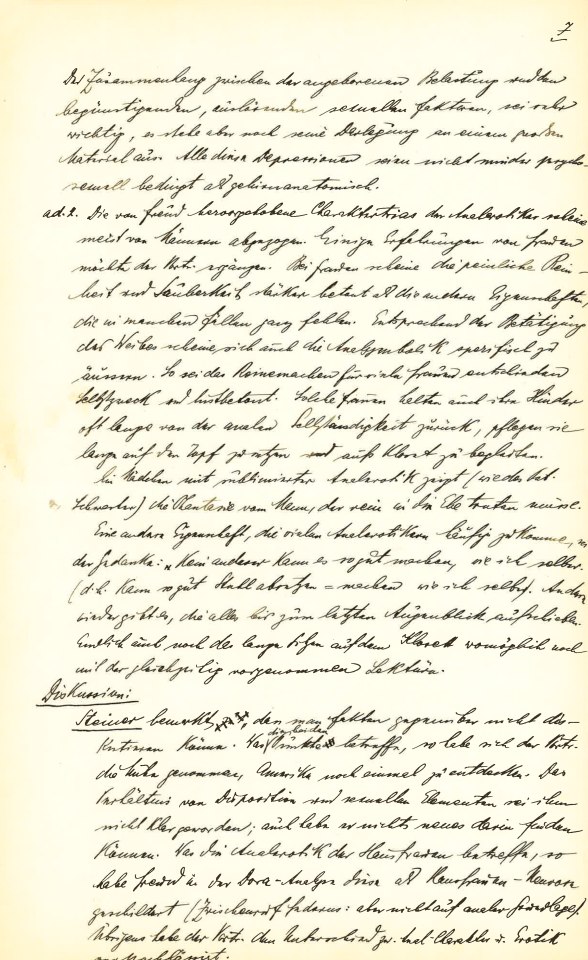 7
Der Zusammenhang zwischen der angeborenen Belastung und den
begünstigenden, auslösenden sexuellen Faktoren, sei sehr
wichtig, es stehe aber noch seine Darlegung an einem großen
Material aus. Alle diese Depressionen seien nicht minder psycho-
sexuell bedingt als gehirnanatomisch.
ad. 2. Die von Freud hervorgehobene Charaktertrias der Analerotiker scheine
meist von Männern abgezogen. Einige Erfahrungen von Frauen
möchte der Vortr. ergänzen. Bei Frauen scheine die peinliche Rein-
heit und Sauberkeit stärker betont als die andern Eigenschaften,
die in manchen Fällen ganz fehlen. Entsprechend der Betätigung
des Weibes scheine sich auch die Analsymbolik spezifisch zu
äussern. So sei das Reinemachen für viele Frauen
Selbstzweck und lustbetont. Solche Frauen halten auch ihre Kinder
oft lange von der analen Selbständigkeit zurück, pflegen sie
lange auf den Topf zu setzen und aufs Kloset zu begleiten.
Ein Mädchen mit sublimierter Analerotik zeigt (wie das bei
Schwester) die Phantasie vom Mann, der rein in die Ehe treten müsse.
Eine andere Eigenschaft, die vielen Analerotikern häufig zukomme, sei
der Gedanke: „Kein anderer kann es so gut machen, wie ich selber.
(d. h. kann so gut Stuhl absetzen = machen wie ich selbst. Andere
wieder gibt es, die alles bis zum letzten Augenblick aufschieben.
Endlich auch noch das lange Sitzen auf dem Kloset womöglich noch
mit der gleichzeitig vorgenommenen Lektüre.
Diskussion:
Steiner bemerkt, dass man Fakten gegenüber nicht dis-
kutieren könne. Was die beiden Punkte betreffe, so habe sich der Vortr.
die Mühe genommen, Amerika noch einmal zu entdecken. Das
Verhältnis von Disposition und sexuellen Elementen sei ihm
nicht klar geworden; auch habe er nichts neues darin finden
können. Was die Analerotik der Hausfrauen betreffe, so
habe Freud in der Dora-Analyse diese als Hausfrauen-Neurose
geschildert (Zwischenruf Federns: aber nicht auf analer Grundlage)
Übrigens habe der Vortr. den Unterschied zw. Anal-Charakter u. Erotik